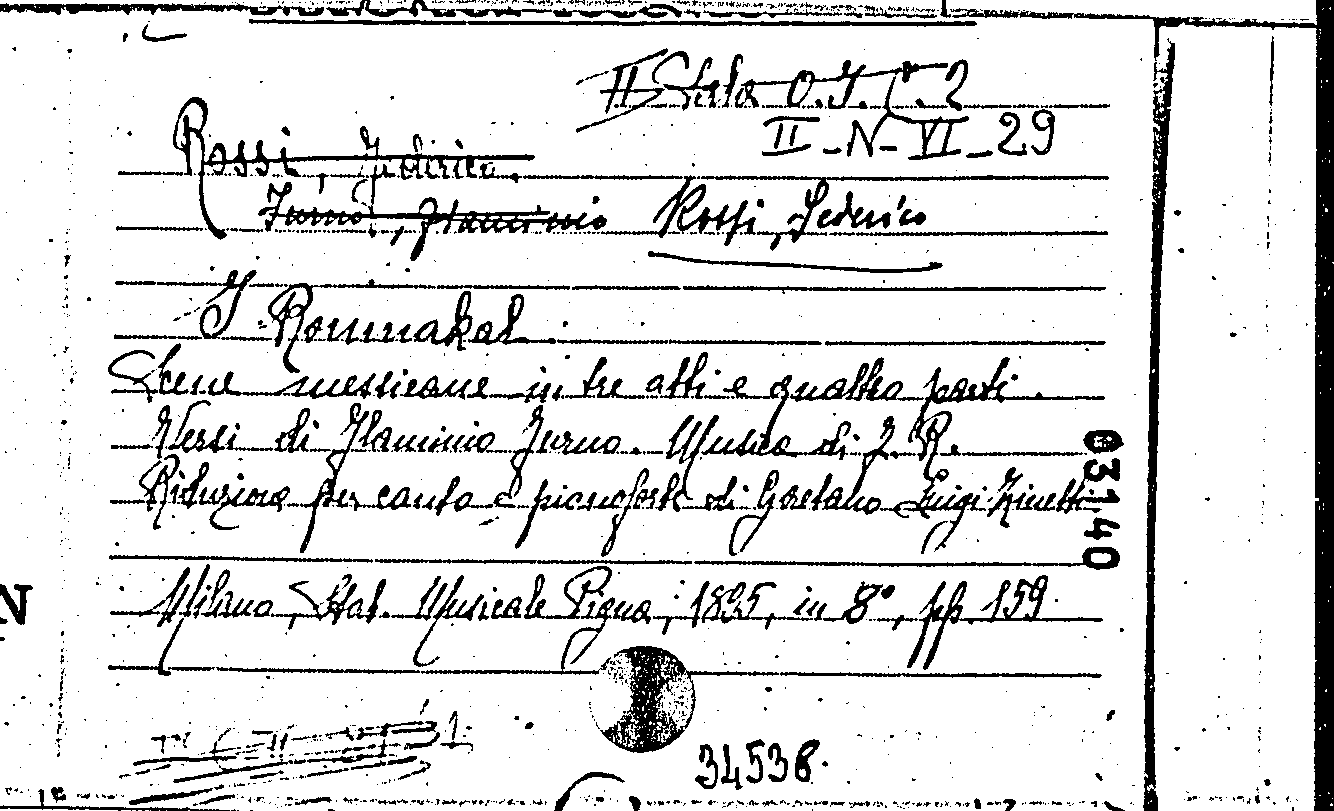 II Sala O.I.C.2
II-N-VI-29
Rossi, Federico.
Furno, Flaminio Rossi, Federico
I Rommakal.
Scene messicane in tre atti e quattro parti.
Versi di Flaminio Furno. Musica di F. R.
Riduzione per canto e pianoforte di Gaetano Luigi Zinetti
03140
Milano, Stab. Musicale Pigna, 1895, in 8°, pp. 159.
N
34538.